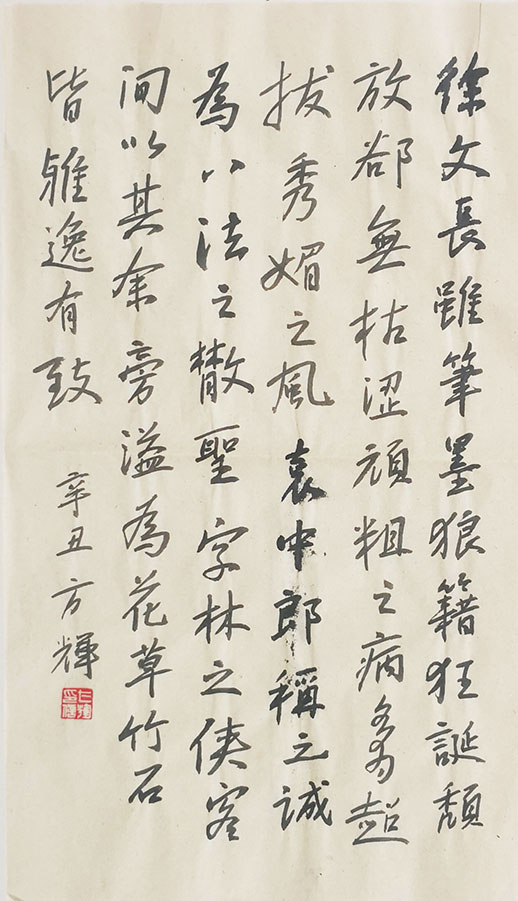 徐文長雖筆墨狼籍狂誕頹
放卻無枯澀頑粗之病多為超
拔秀媚之風袁中郎稱之誠
為八法之散聖字林之俠客
间以其余旁溢為花草竹石
皆雅逸有致
辛丑方輝